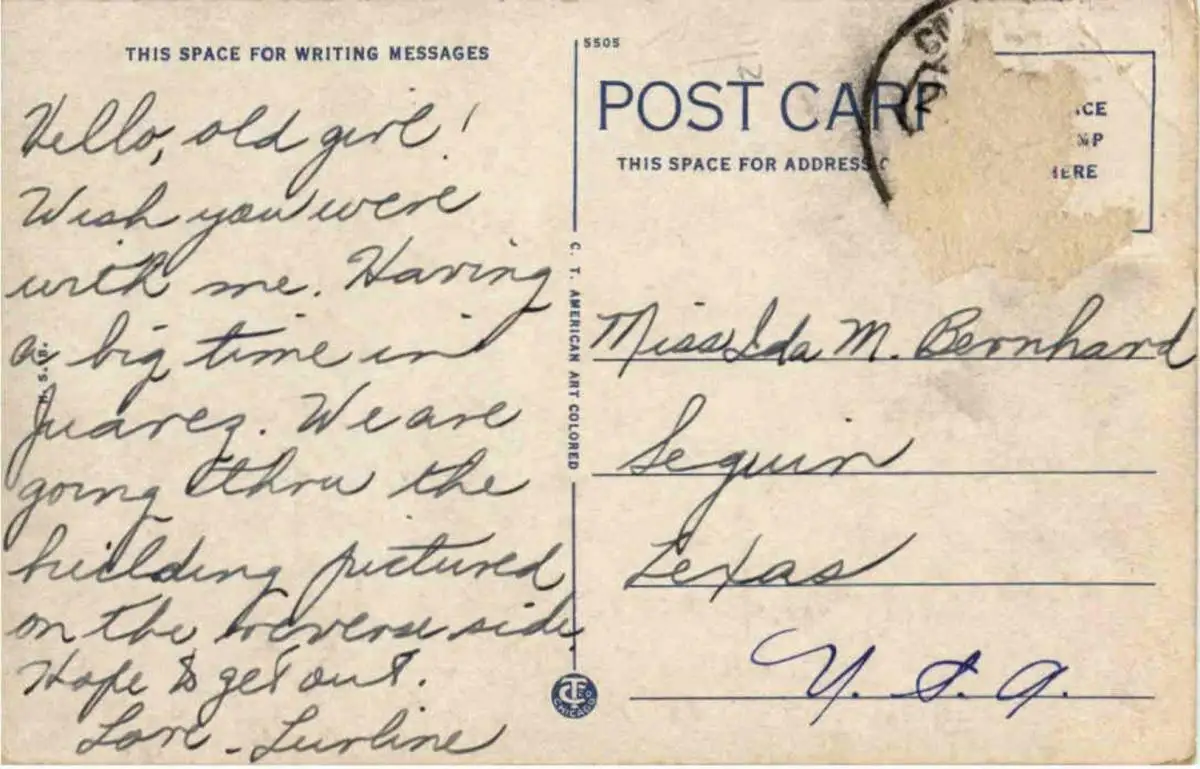 THIS SPACE FOR WRITING MESSAGES
Hello, old girl!
Wish you were
with me. Having
a big time in
Juarez. We are
going thru the
building pictured
on the reverse side.
Hope to get out.
Love - Lurline
C. T. AMERICAN ART COLORED
CHICAGO
5505
POST CAR
THIS SPACE FOR ADDRESS
Miss Ida M. Bernhard
Seguin
Texas
U. S. A.